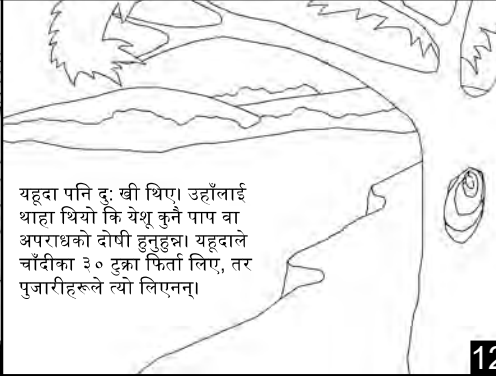 यहूदा पनि दु: खी थिए। उहाँलाई
थाहा थियो कि येशू कुनै पाप वा
अपराधको दोषी हुनुहुन्न। यहूदाले
चाँदीका ३० टुक्रा फिर्ता लिए, तर
पुजारीहरूले त्यो लिएनन्।
12